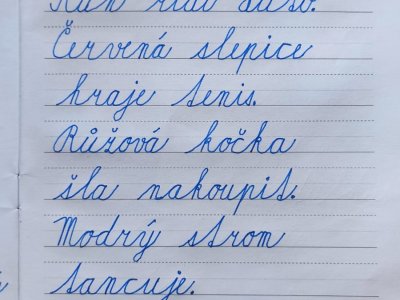 Kůň řídí auto.
Červená slepice
hraje tenis.
Růžová kočka
šla nakoupit.
Modrý strom
tancuje.